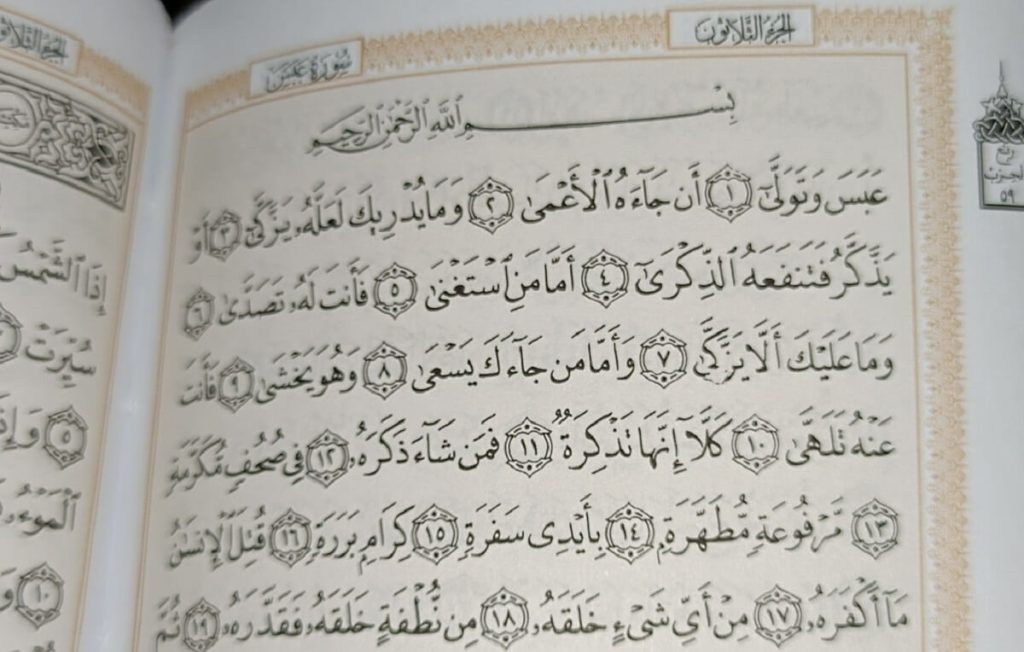 الجزء الثلاثون
سورة عبس
بِسْمِ ٱللَّهِ ٱلرَّحْمَٰنِ ٱلرَّحِيمِ
عَبَسَ وَتَوَلَّىٰٓ ١ أَن جَآءَهُ ٱلْأَعْمَىٰ ٢ وَمَا يُدْرِيكَ لَعَلَّهُۥ يَزَّكَّىٰٓ ٣ أَوْ
يَذَّكَّرُ فَتَنفَعَهُ ٱلذِّكْرَىٰٓ ٤ أَمَّا مَنِ ٱسْتَغْنَىٰ ٥ فَأَنتَ لَهُۥ تَصَدَّىٰ ٦
وَمَا عَلَيْكَ أَلَّا يَزَّكَّىٰ ٧ وَأَمَّا مَن جَآءَكَ يَسْعَىٰ ٨ وَهُوَ يَخْشَىٰ ٩ فَأَنتَ
عَنْهُ تَلَهَّىٰ ١٠ كَلَّآ إِنَّهَا تَذْكِرَةٌ ١١ فَمَن شَآءَ ذَكَرَهُۥ ١٢ فِى صُحُفٍ مُّكَرَّمَةٍ
١٣ مَّرْفُوعَةٍ مُّطَهَّرَةٍۭ ١٤ بِأَيْدِى سَفَرَةٍ ١٥ كِرَامٍۭ بَرَرَةٍ ١٦ قُتِلَ ٱلْإِنسَٰنُ
مَآ أَكْفَرَهُۥ ١٧ مِنْ أَىِّ شَىْءٍ خَلَقَهُۥ ١٨ مِن نُّطْفَةٍ خَلَقَهُۥ فَقَدَّرَهُۥ ١٩ ثُمَّ
ربع
الحزب
٥٩
الجزء الثلاثون
إِذَا ٱلشَّمْسُ
سُيِّرَتْ
٥ وَإِذَا
ٱلْمَوْءُۥدَةُ
١٠